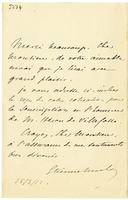 Merci beaucoup, cher
Monsieur, de votre aimable
envoi que je lirai avec
grand plaisir.
Je vous adresse ci-inclus
le reçu de votre cotisation pour
la Souscription en l'honneur
de M. Héron de Villefosse
Croyez, cher Monsieur,
à l'assurance de mes sentiments
bien dévoués